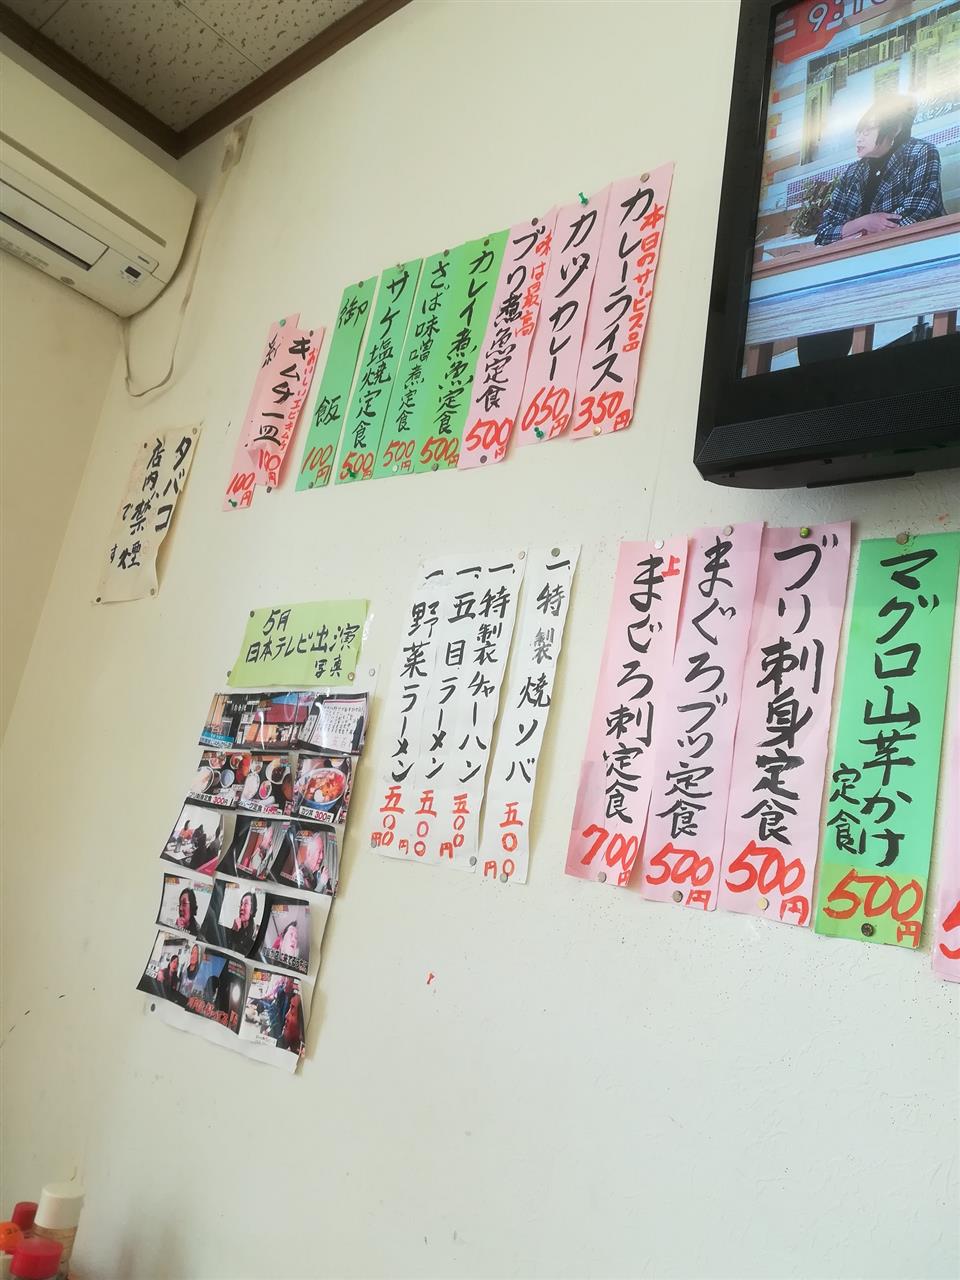 9:1
カレーライス
本日のサービス品
350円
カツカレー
650円
ブリ煮魚定食
味は最高
500円
カレイ煮魚定食
500円
さば味噌煮定食
500円
サケ塩焼定食
500円
御飯
100円
キムチ一皿
おいしいエビキムチ
100円
100円
タバコ
店内、禁煙
です
5月
日本テレビ出演
写真
300円
300円
一、特製焼ソバ
五〇〇円
一、特製チャーハン
五〇〇円
一、五目ラーメン
五〇〇円
一、野菜ラーメン
五〇〇円
マグロ山芋かけ
定食
500円
ブリ刺身定食
500円
まぐろブツ定食
500円
上まぐろ刺定食
700円